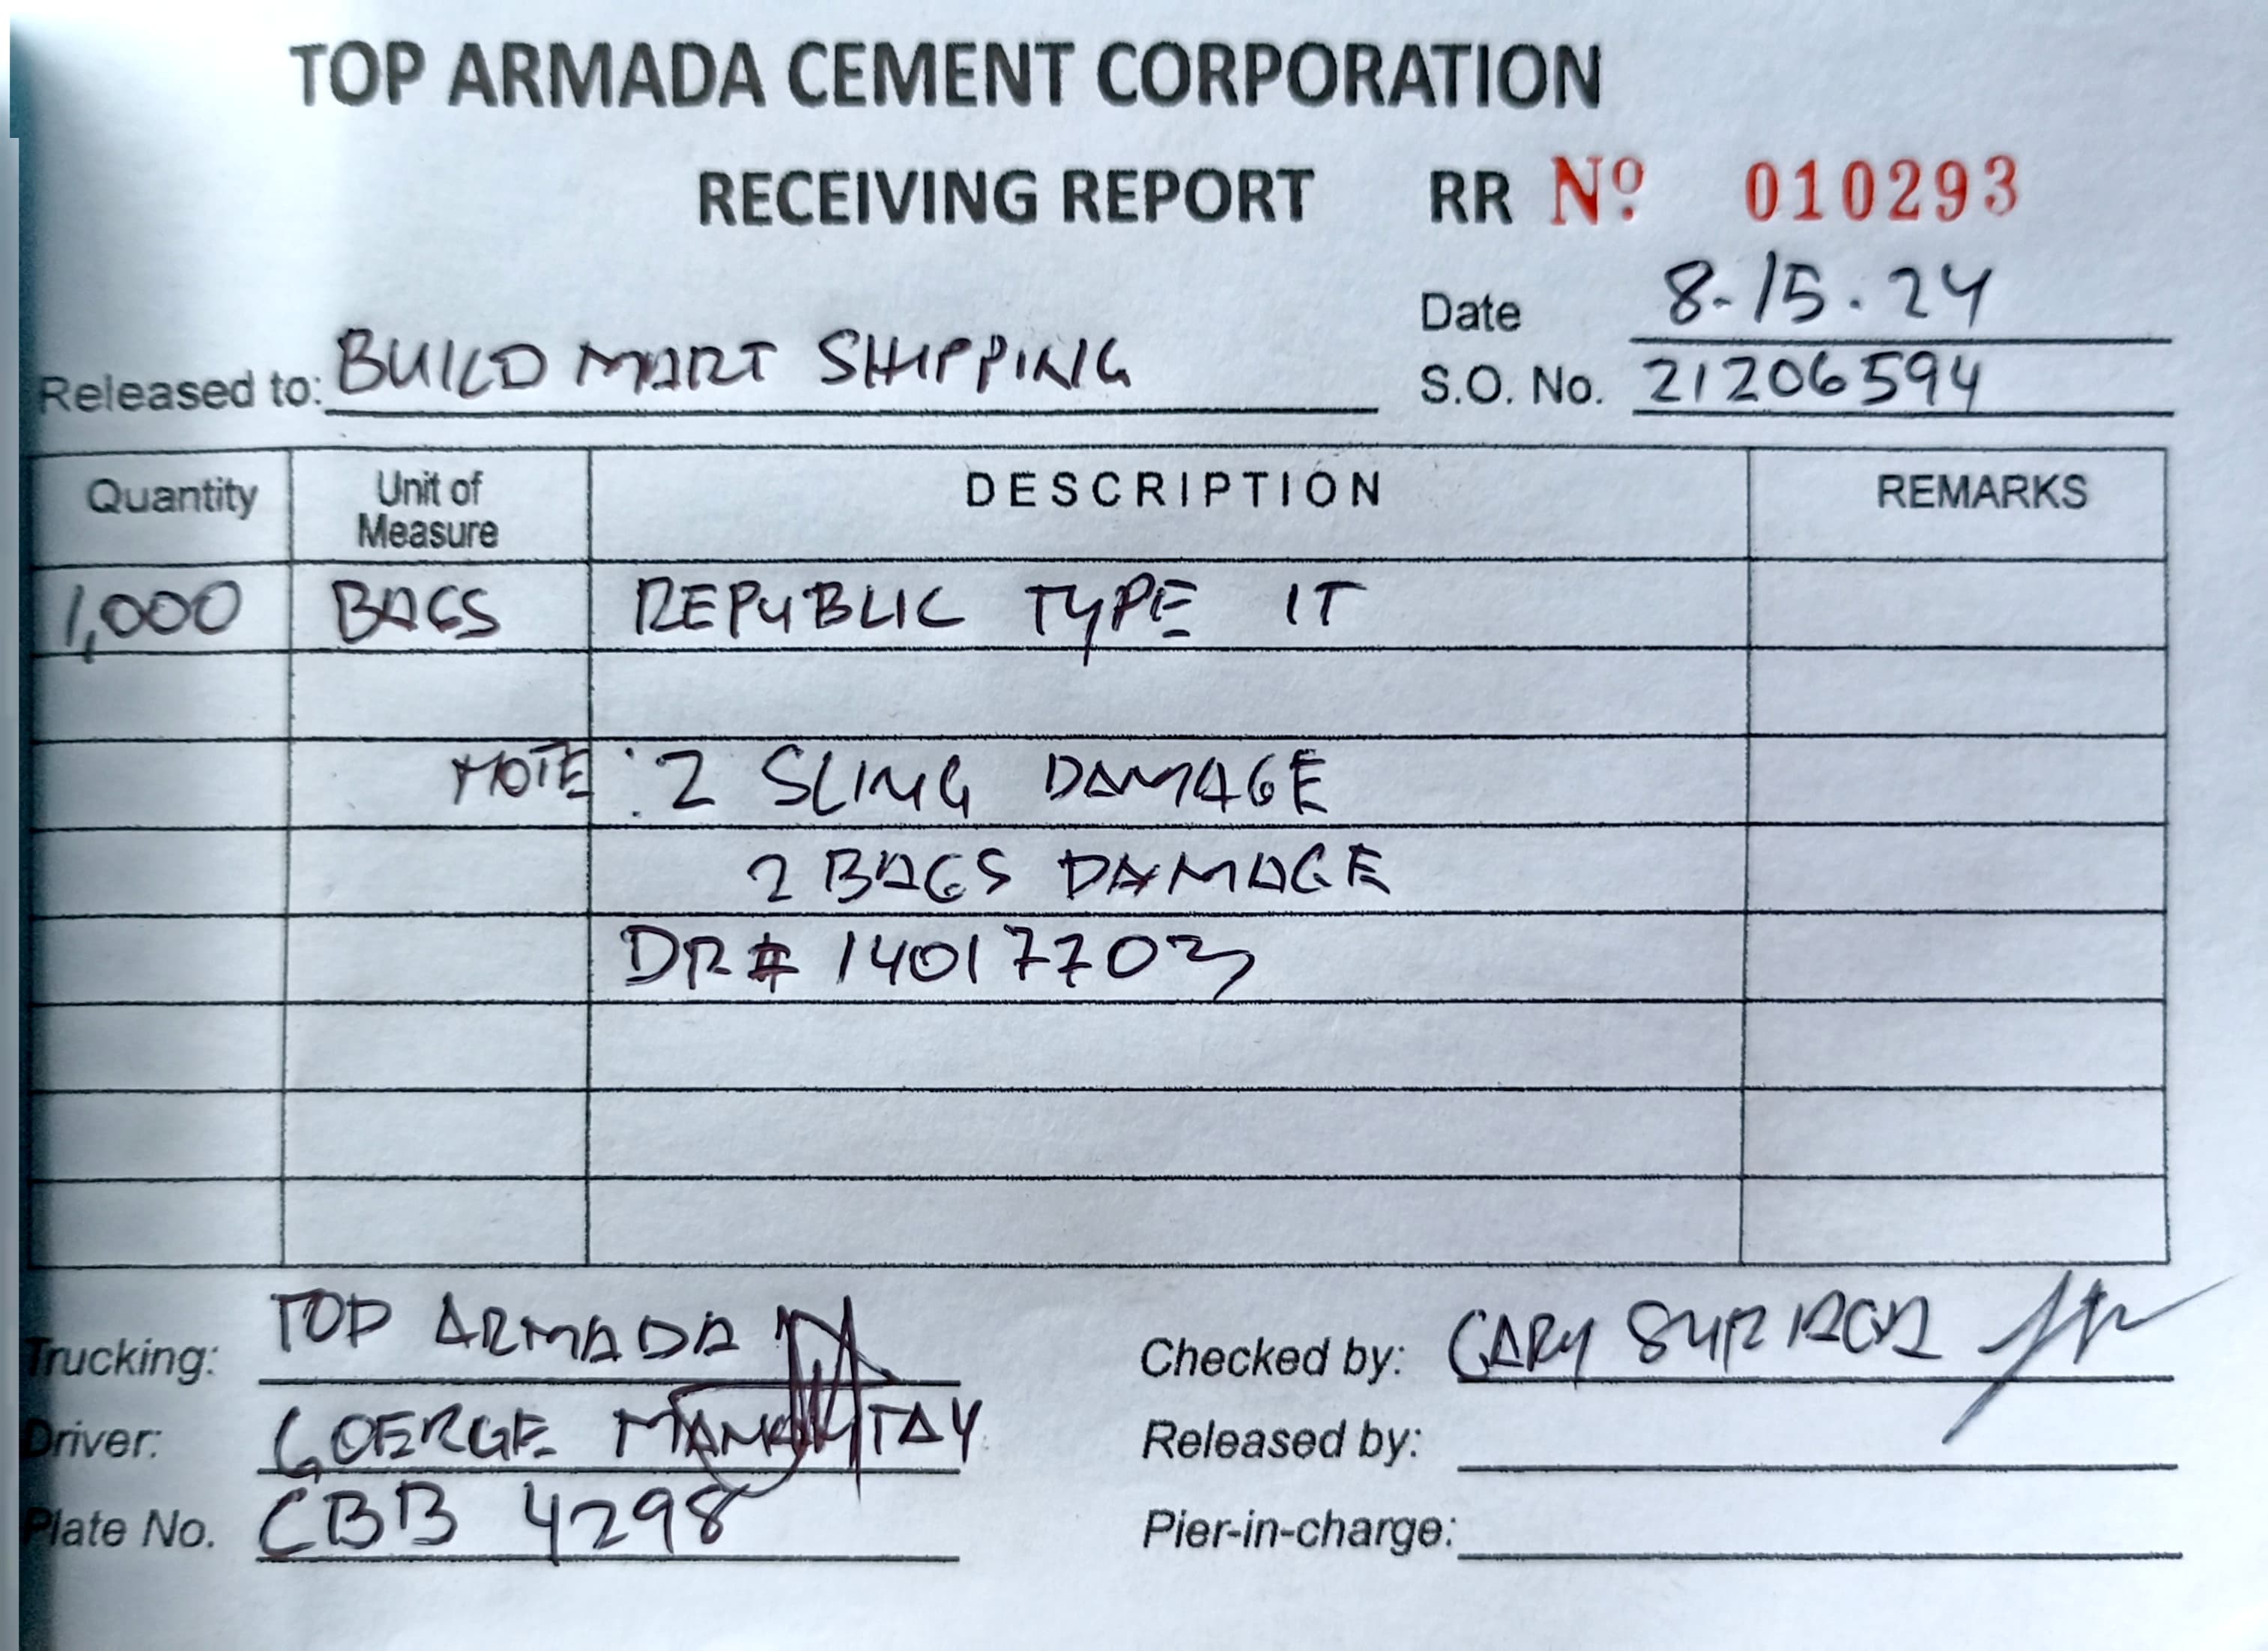 TOP ARMADA CEMENT CORPORATION
RECEIVING REPORT RR Nº 010293
Date 8-15.24
Released to: BUILD MART SHIPPING
S.O. No. 21206594
Quantity Unit of Measure DESCRIPTION REMARKS
1,000 BAGS REPUBLIC TYPE IT
NOTE: 2 SLING DAMAGE
2 BAGS DAMAGE
DR# 14017703
Trucking: TOP ARMADA
Checked by: GARY
Driver: GOERGE
Released by:
Plate No. CBB 4298
Pier-in-charge: